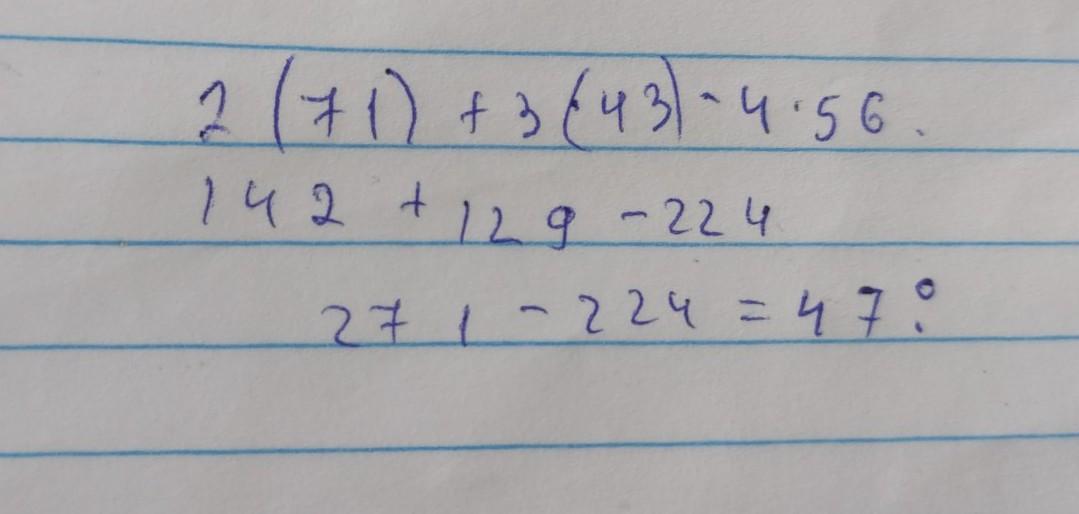 2 (71) + 3 (43) - 4 · 56.
142 + 129 - 224
271 - 224 = 47°.